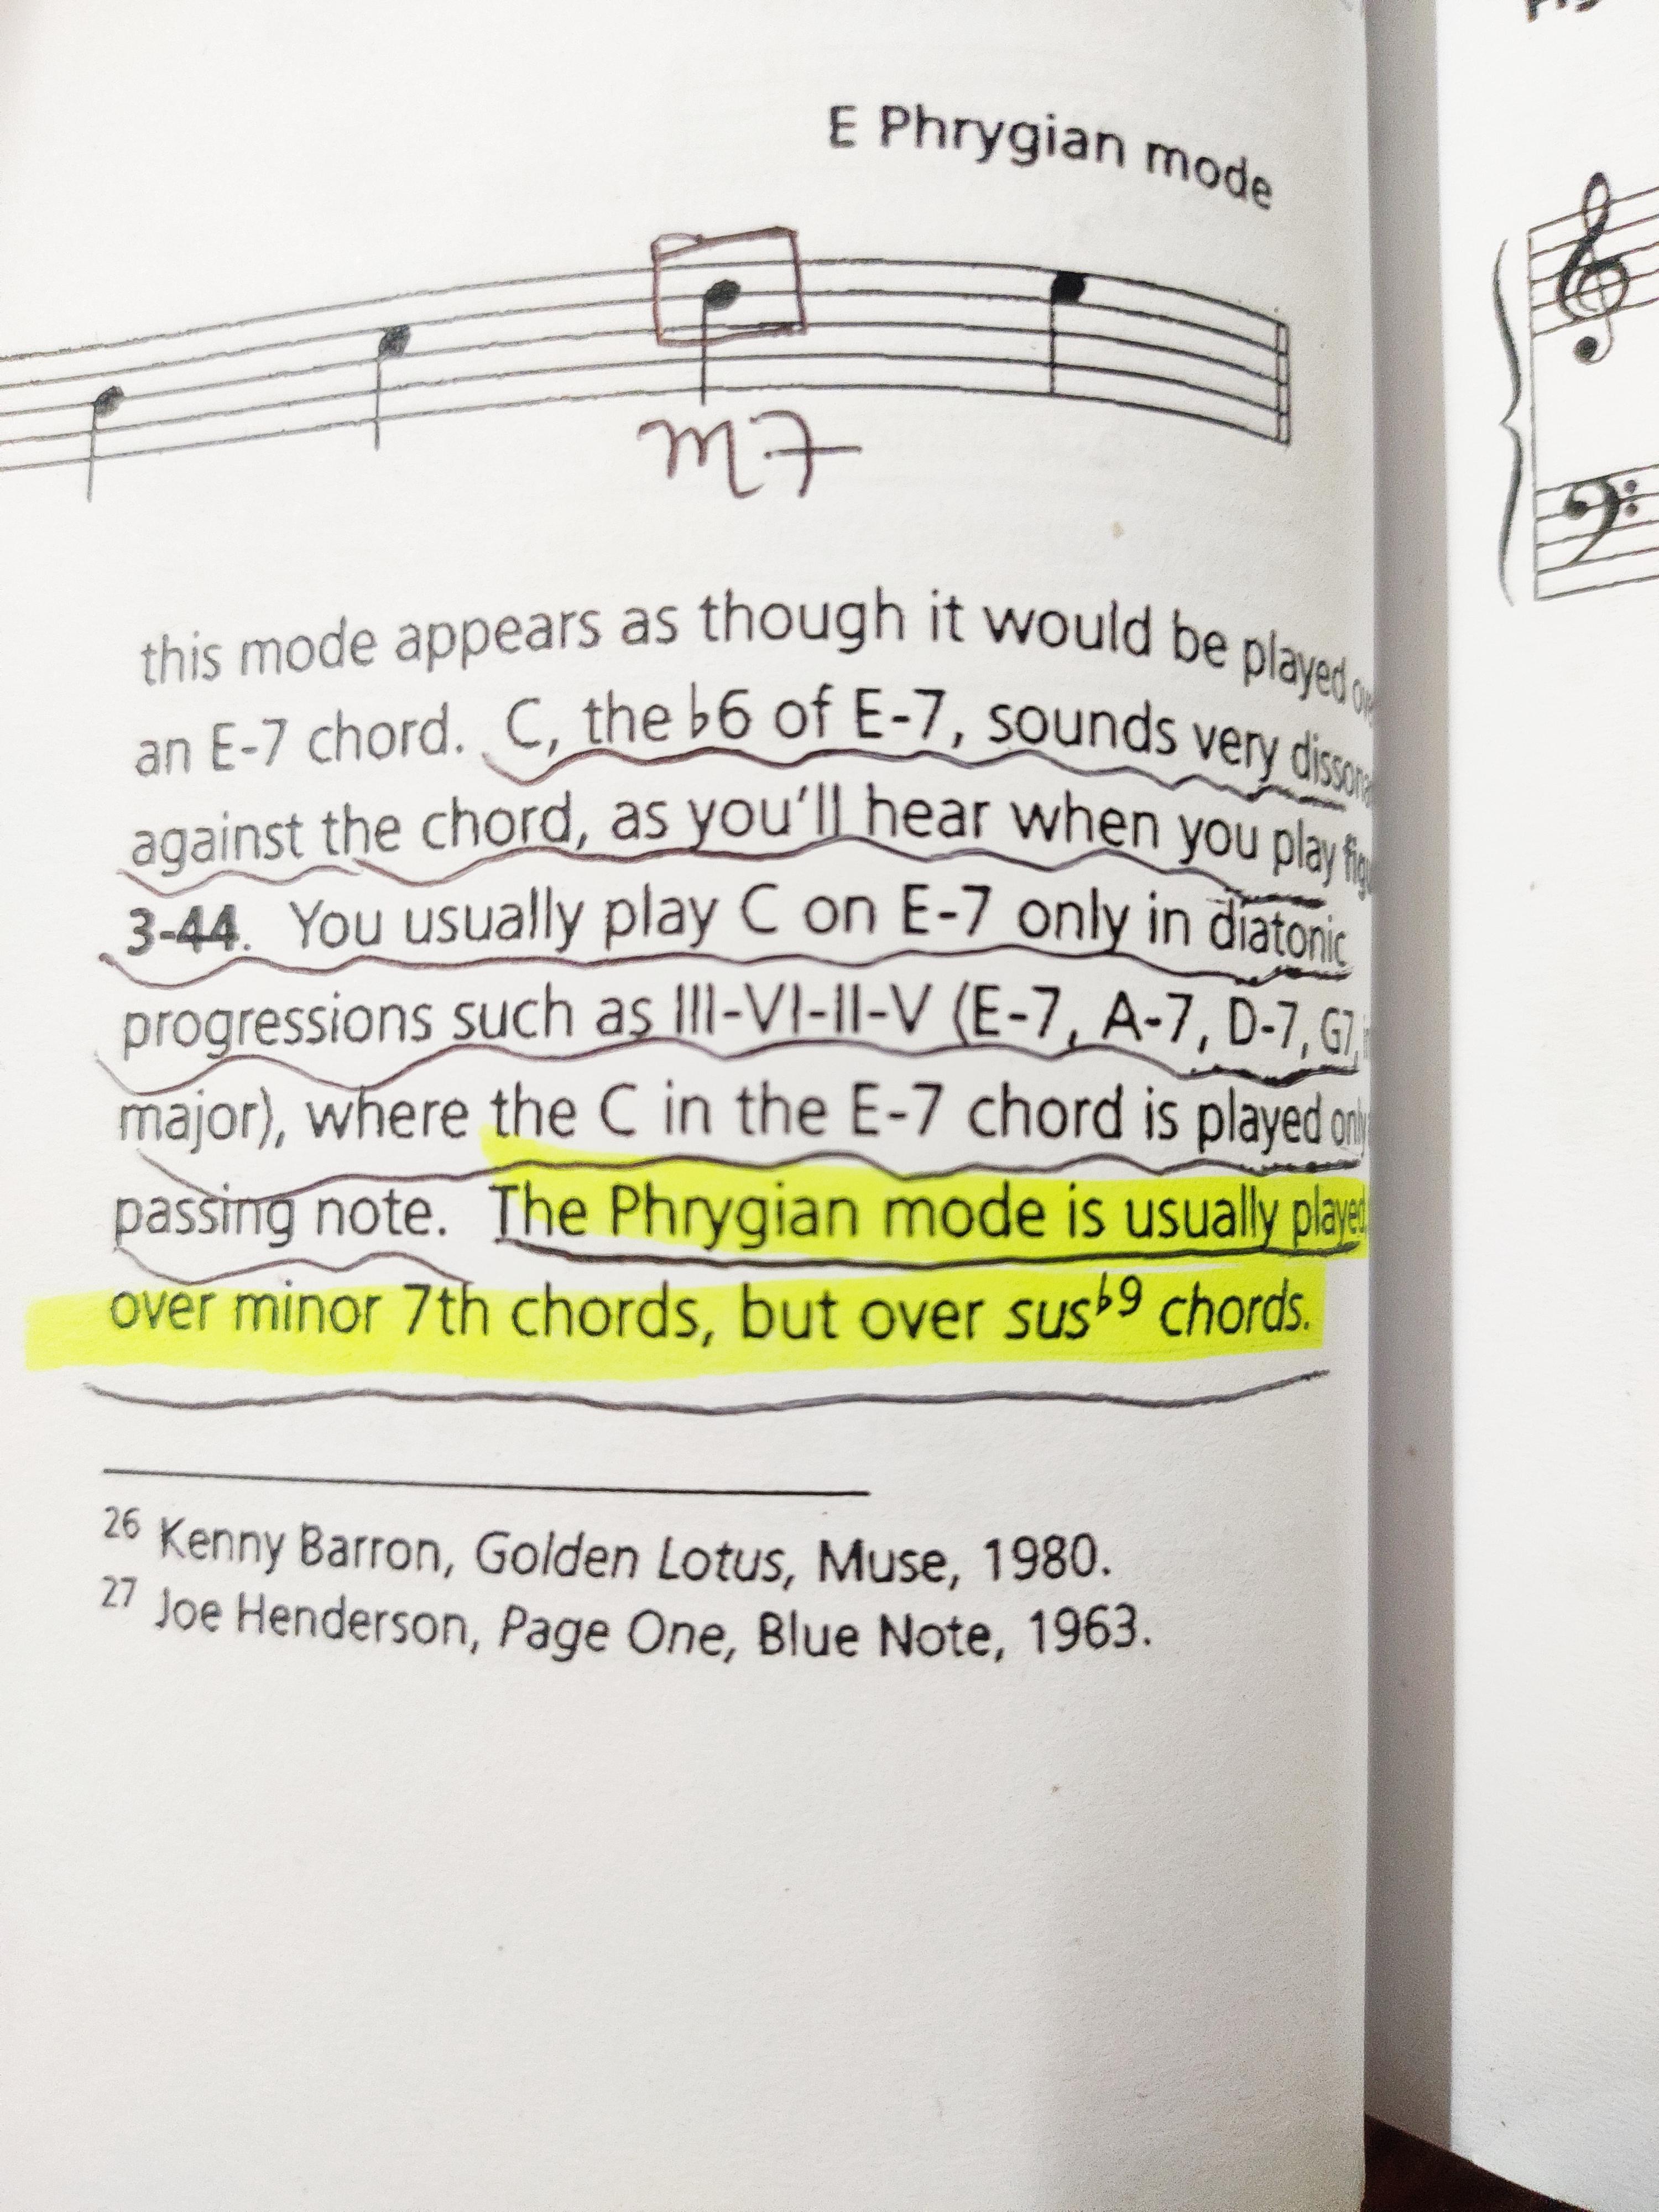 E Phrygian mode
m7
this mode appears as though it would be played
an E-7 chord. C, the ♭6 of E-7, sounds very
against the chord, as you'll hear when you play
3-44. You usually play C on E-7 only in diatonic
progressions such as III-VI-II-V (E-7, A-7, D-7, G7,
major), where the C in the E-7 chord is played only
passing note. The Phrygian mode is usually played
over minor 7th chords, but over sus♭9 chords.
26 Kenny Barron, Golden Lotus, Muse, 1980.
27 Joe Henderson, Page One, Blue Note, 1963.